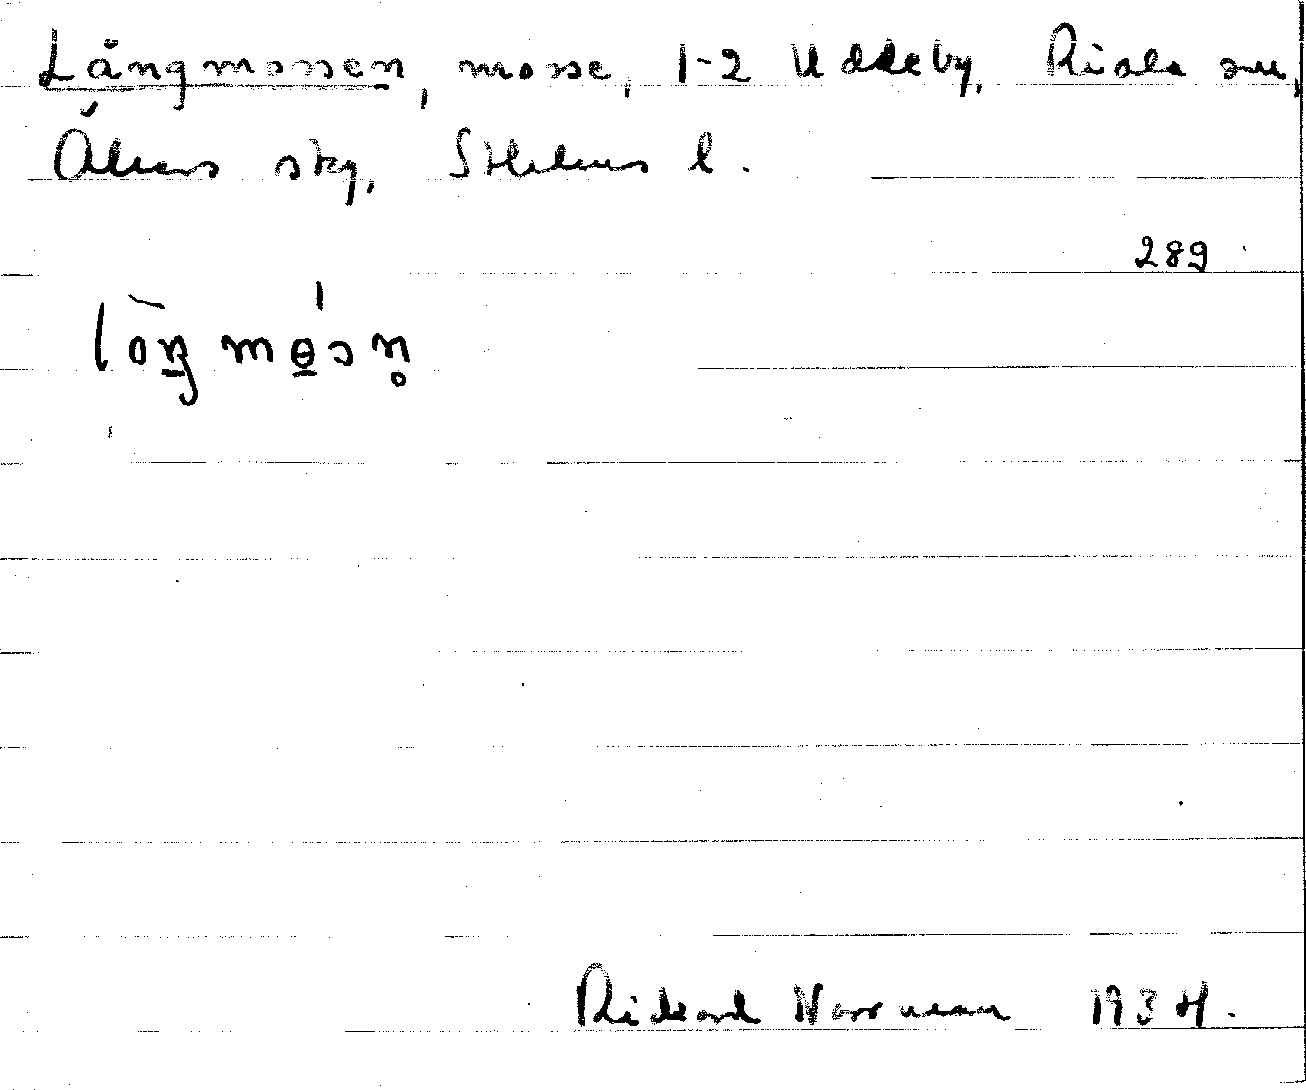 Långmossen, mosse, 1-2 Uddeby, Riala sn,
Åkers skg, Sthlms l.
289
lòŋ mɵ́sn̥
Rickard Norrman 1934.